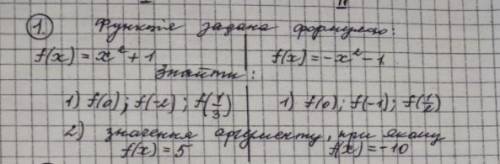 II
① Функція задана формулою:
f(x) = x² + 1 f(x) = -x² - 1
Знайти:
1) f(0); f(-2); f(1/3) 1) f(0); f(-1); f(1/2)
2) значення аргументу, при якому
f(x) = 5 f(x) = -10